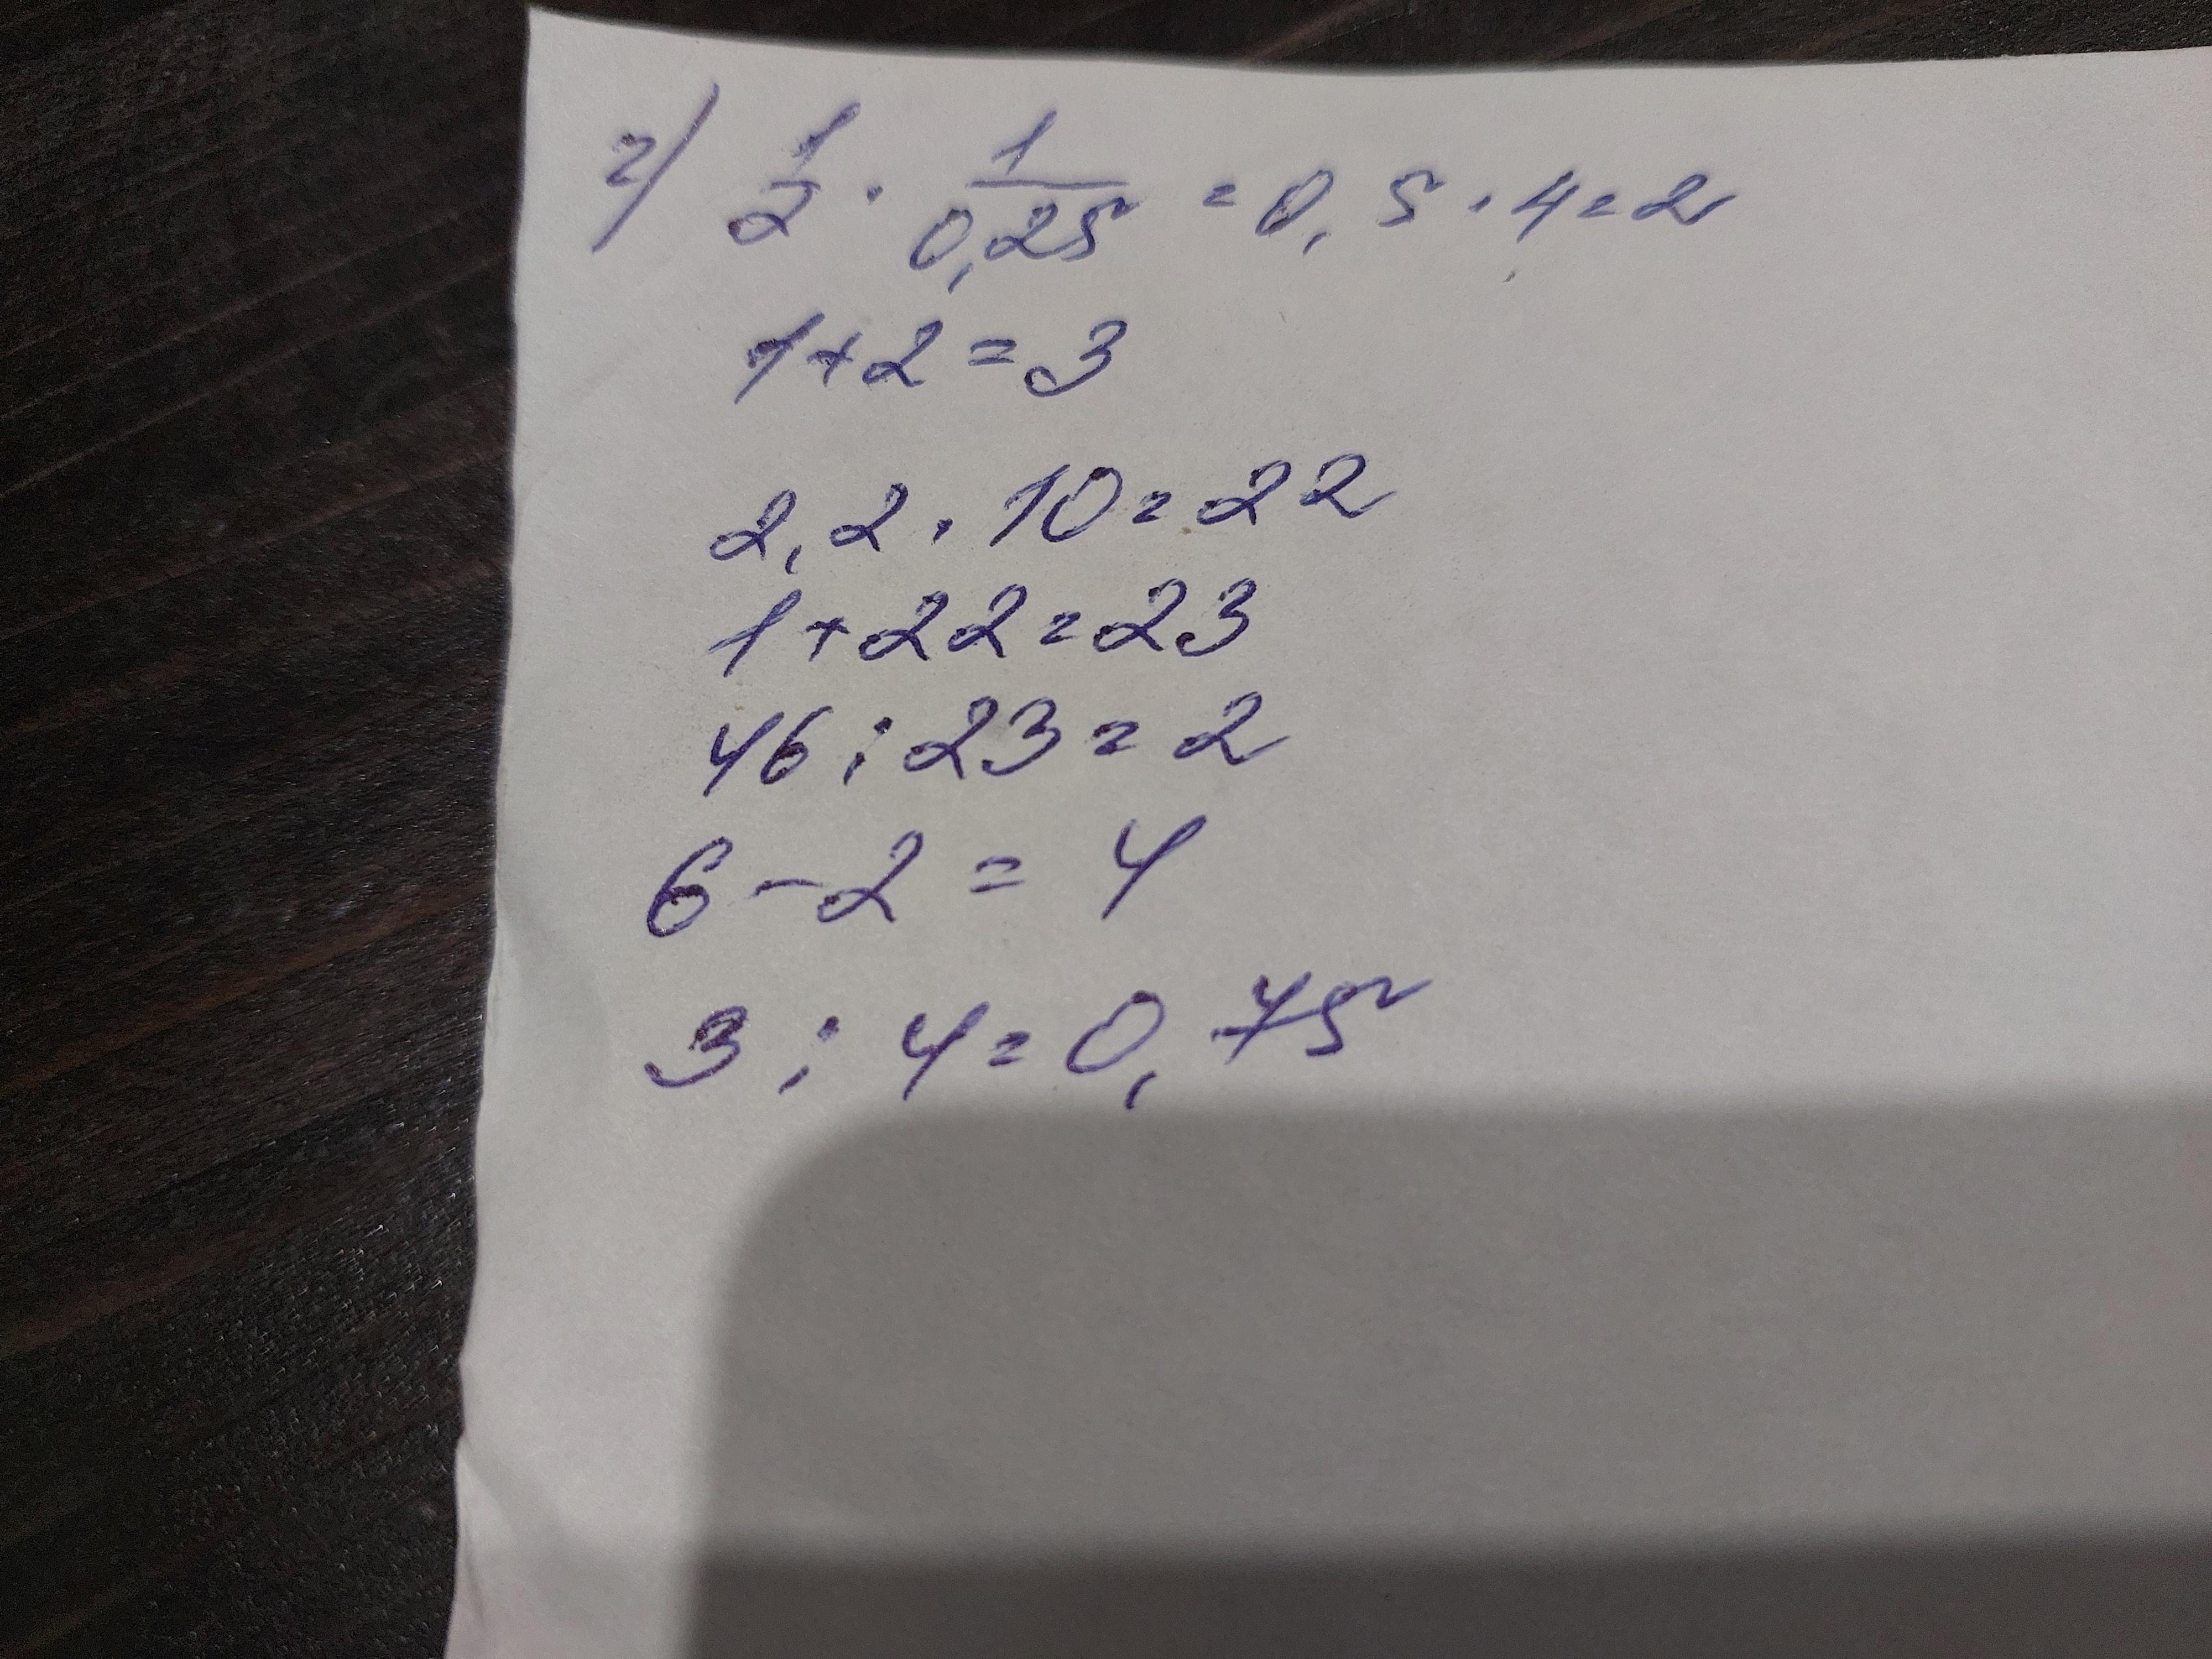 г) 1/2 · 1/0,25 = 0,5 · 4 = 2
1 + 2 = 3
2,2 · 10 = 22
1 + 22 = 23
46 : 23 = 2
6 - 2 = 4
3 : 4 = 0,75